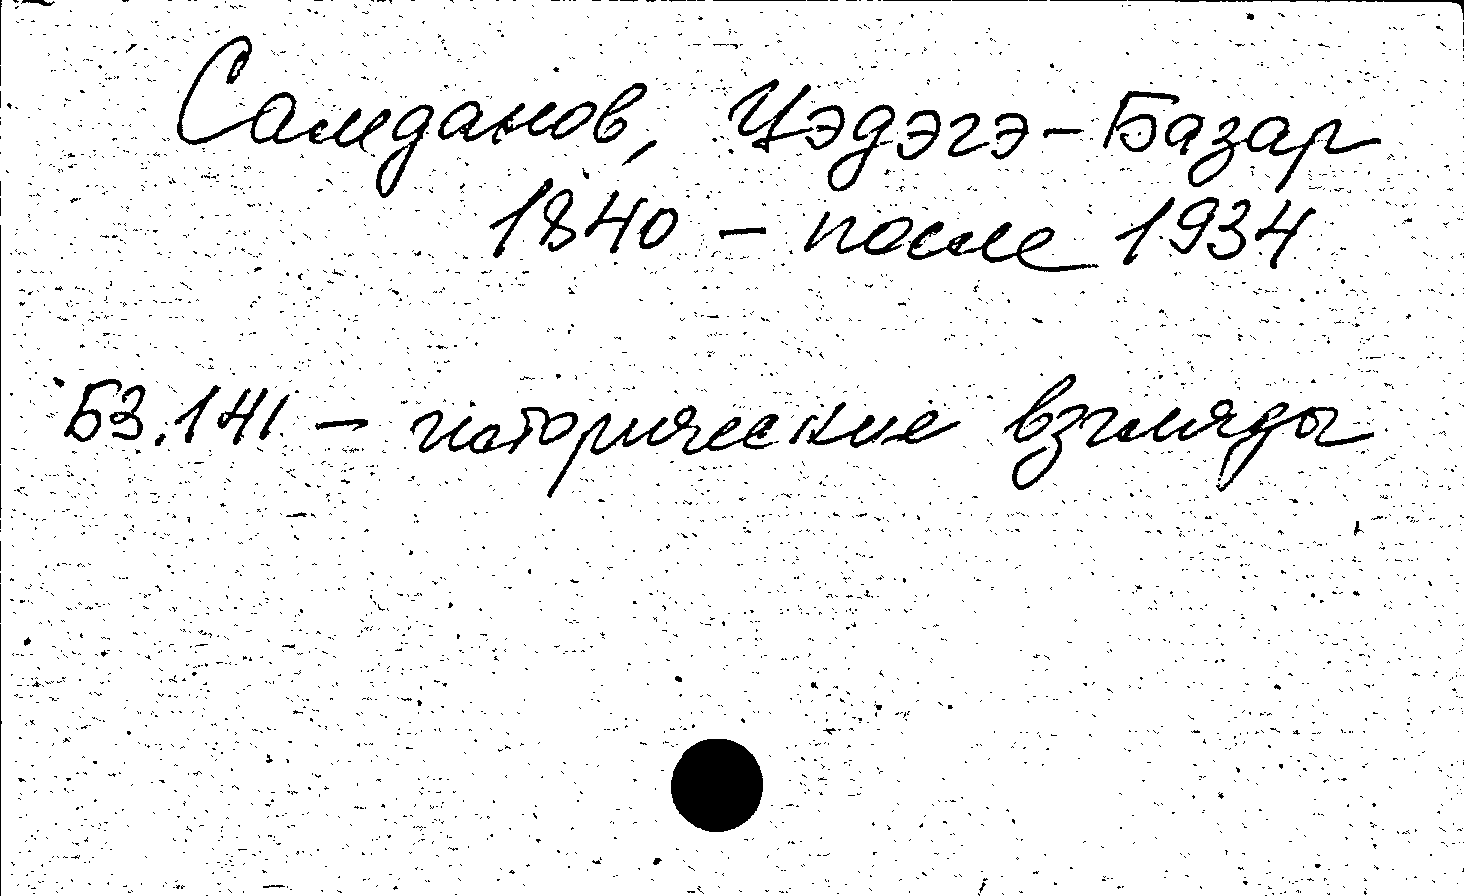 Самданов, Цэдэгэ-Базар
1840 – после 1934
Б3.141 – исторические взгляды